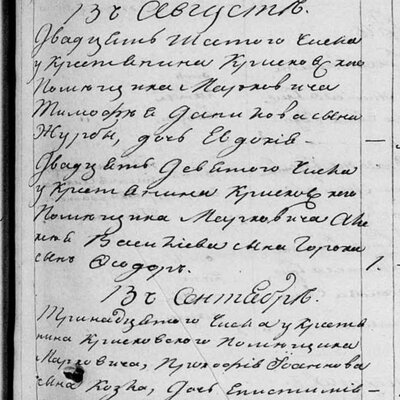 Въ Августѣ.
Двадцать шестого Числа
у Крестьянина Крисковского
Помѣщика Марковича
Тимофѣя Данилова сына
Журбы, дочь Евдокія —
Двадцать Девятого Числа
у Крестьянина Крисковского
Помѣщика Марковича Але
ксѣя Васильева сына Гороха
сынъ Ѳеодоръ. 1.
Въ Сентябрѣ.
Тринадцатого Числа у Крестья
нина Крисковского Помѣщика
Марковича, Прокофія Іоаннова
сына Козка, дочь Епистимія —